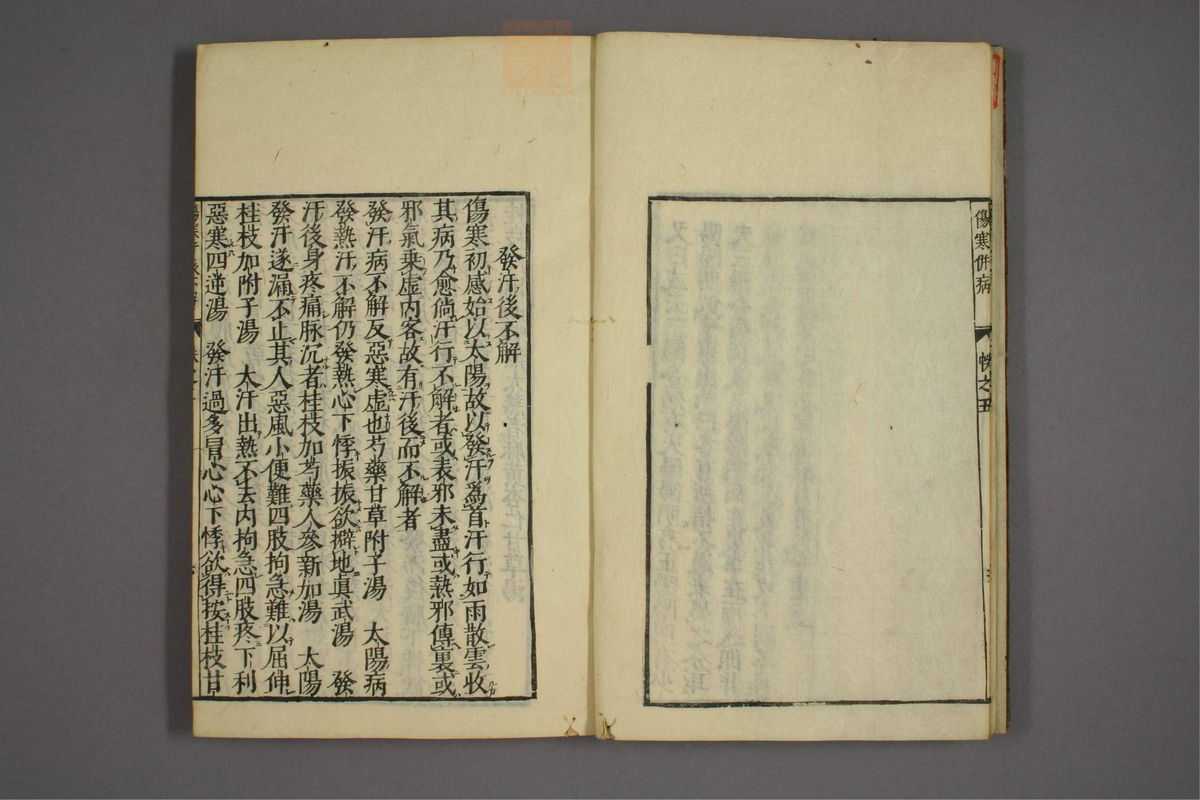 傷寒併病
帙之五
發汗後不解
傷寒初感始以太陽故以發汗爲首汗行如雨散雲收
其病乃愈倘汗行不解者或表邪未盡或熱邪傳裏或
邪氣乗虚内客故有汗後而不解者
發汗病不解反惡寒虚也芍藥甘草附子湯 太陽病
發熱汗不解仍發熱心下悸振振欲擗地眞武湯 發
汗後身疼痛脉沉者桂枝加芍藥人參新加湯 太陽
發汗遂漏不止其人惡風小便難四肢拘急難以屈伸
桂枝加附子湯 太汗出熱不去内拘急四肢疼下利
惡寒四逆湯 發汗過多冒心心下悸欲得按桂枝甘